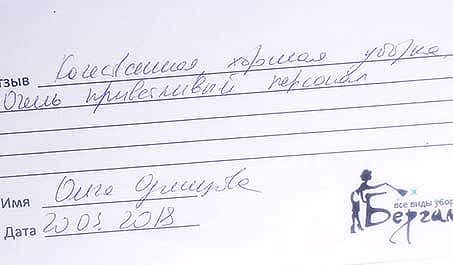 тзыв Качественная, хорошая уборка,
Очень приветливый персонал
Имя Ольга
Дата 20.03.2018
все виды убор
Бергам